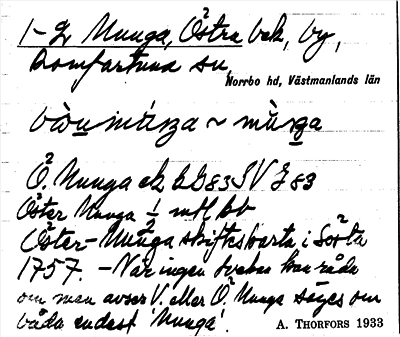 1-2 Munga, Östra bek, by,
Romfartuna sn,
Norrbo hd, Västmanlands län
Ö. Munga ek bG83SV J83
Öster Munga 1/2 mtl Jb
Öster-Munga skifteskarta i Sörta
1757. – När ingen tvekan kan råda
om man avser V. eller Ö. Munga säges om
båda endast 'Munga'.
A. THORFORS 1933